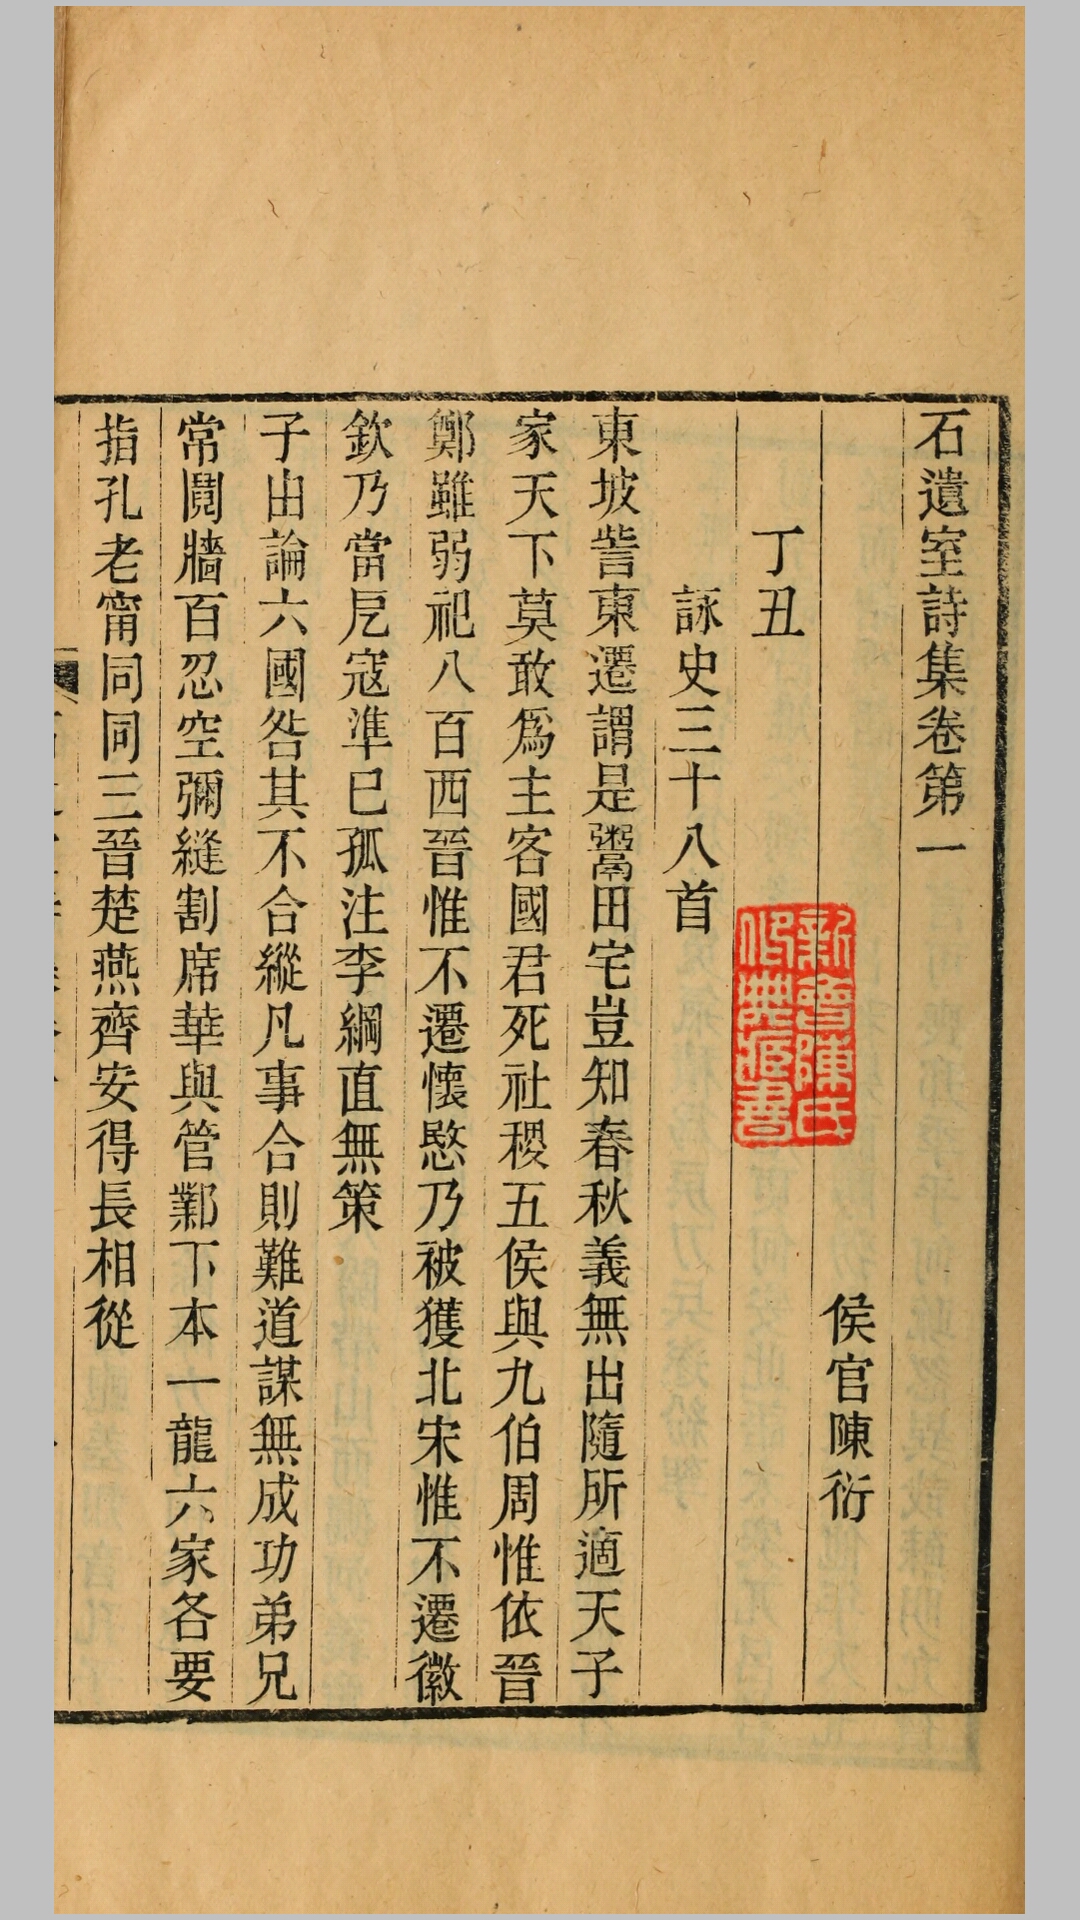 石遺室詩集卷第一
侯官陳衍
丁丑
詠史三十八首
東坡訾東遷謂是鬻田宅豈知春秋義無出隨所適天子
家天下莫敢爲主客國君死社稷五侯與九伯周惟依晉
鄭雖弱祀八百西晉惟不遷懷愍乃被獲北宋惟不遷徽
欽乃當戹寇準已孤注李綱直無策
子由論六國咎其不合縱凡事合則難道謀無成功弟兄
常鬩牆百忍空彌縫割席華與管鄴下本一龍六家各要
指孔老甯同同三晉楚燕齊安得長相從
新會陳氏